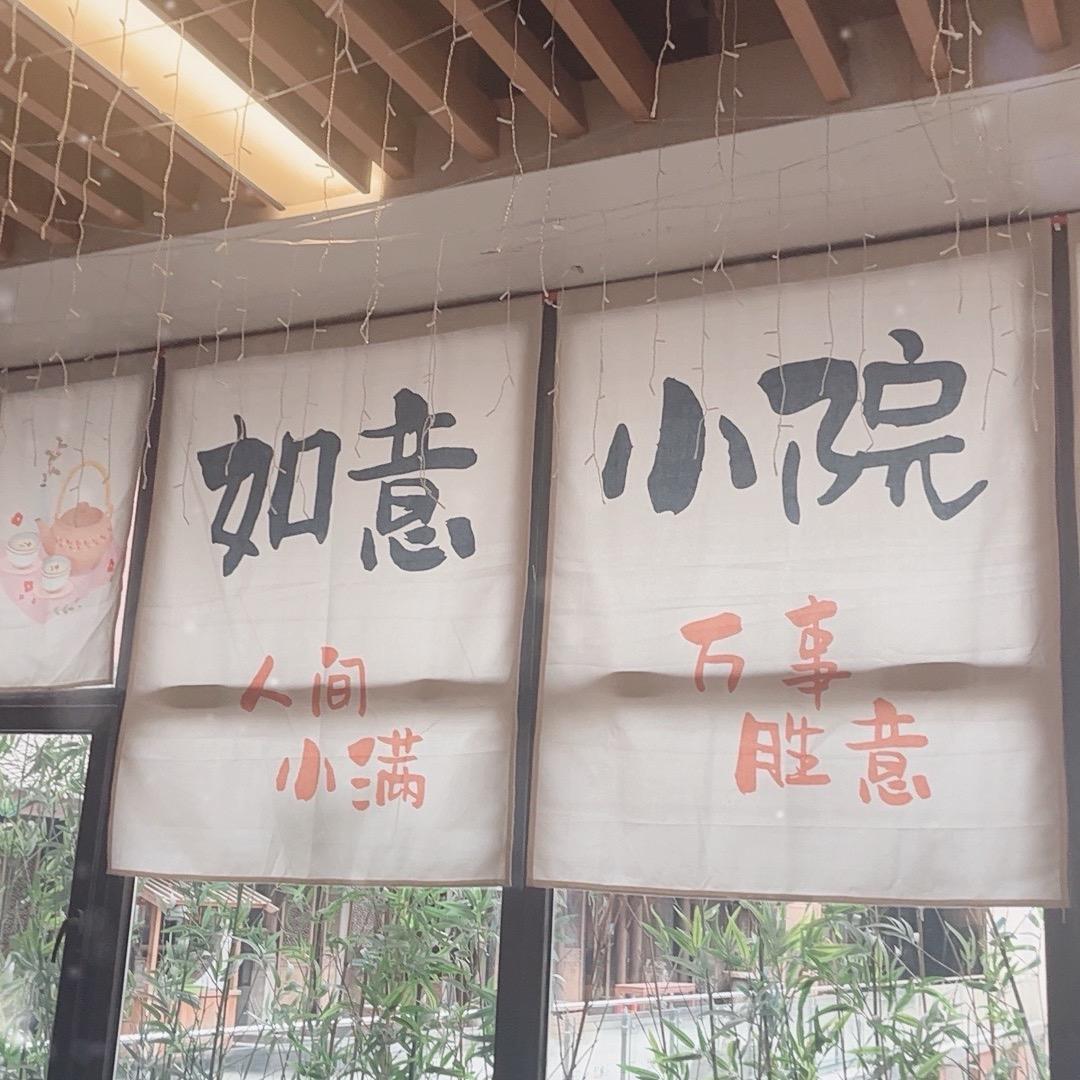 如意
人间
小满
小院
万事
胜意